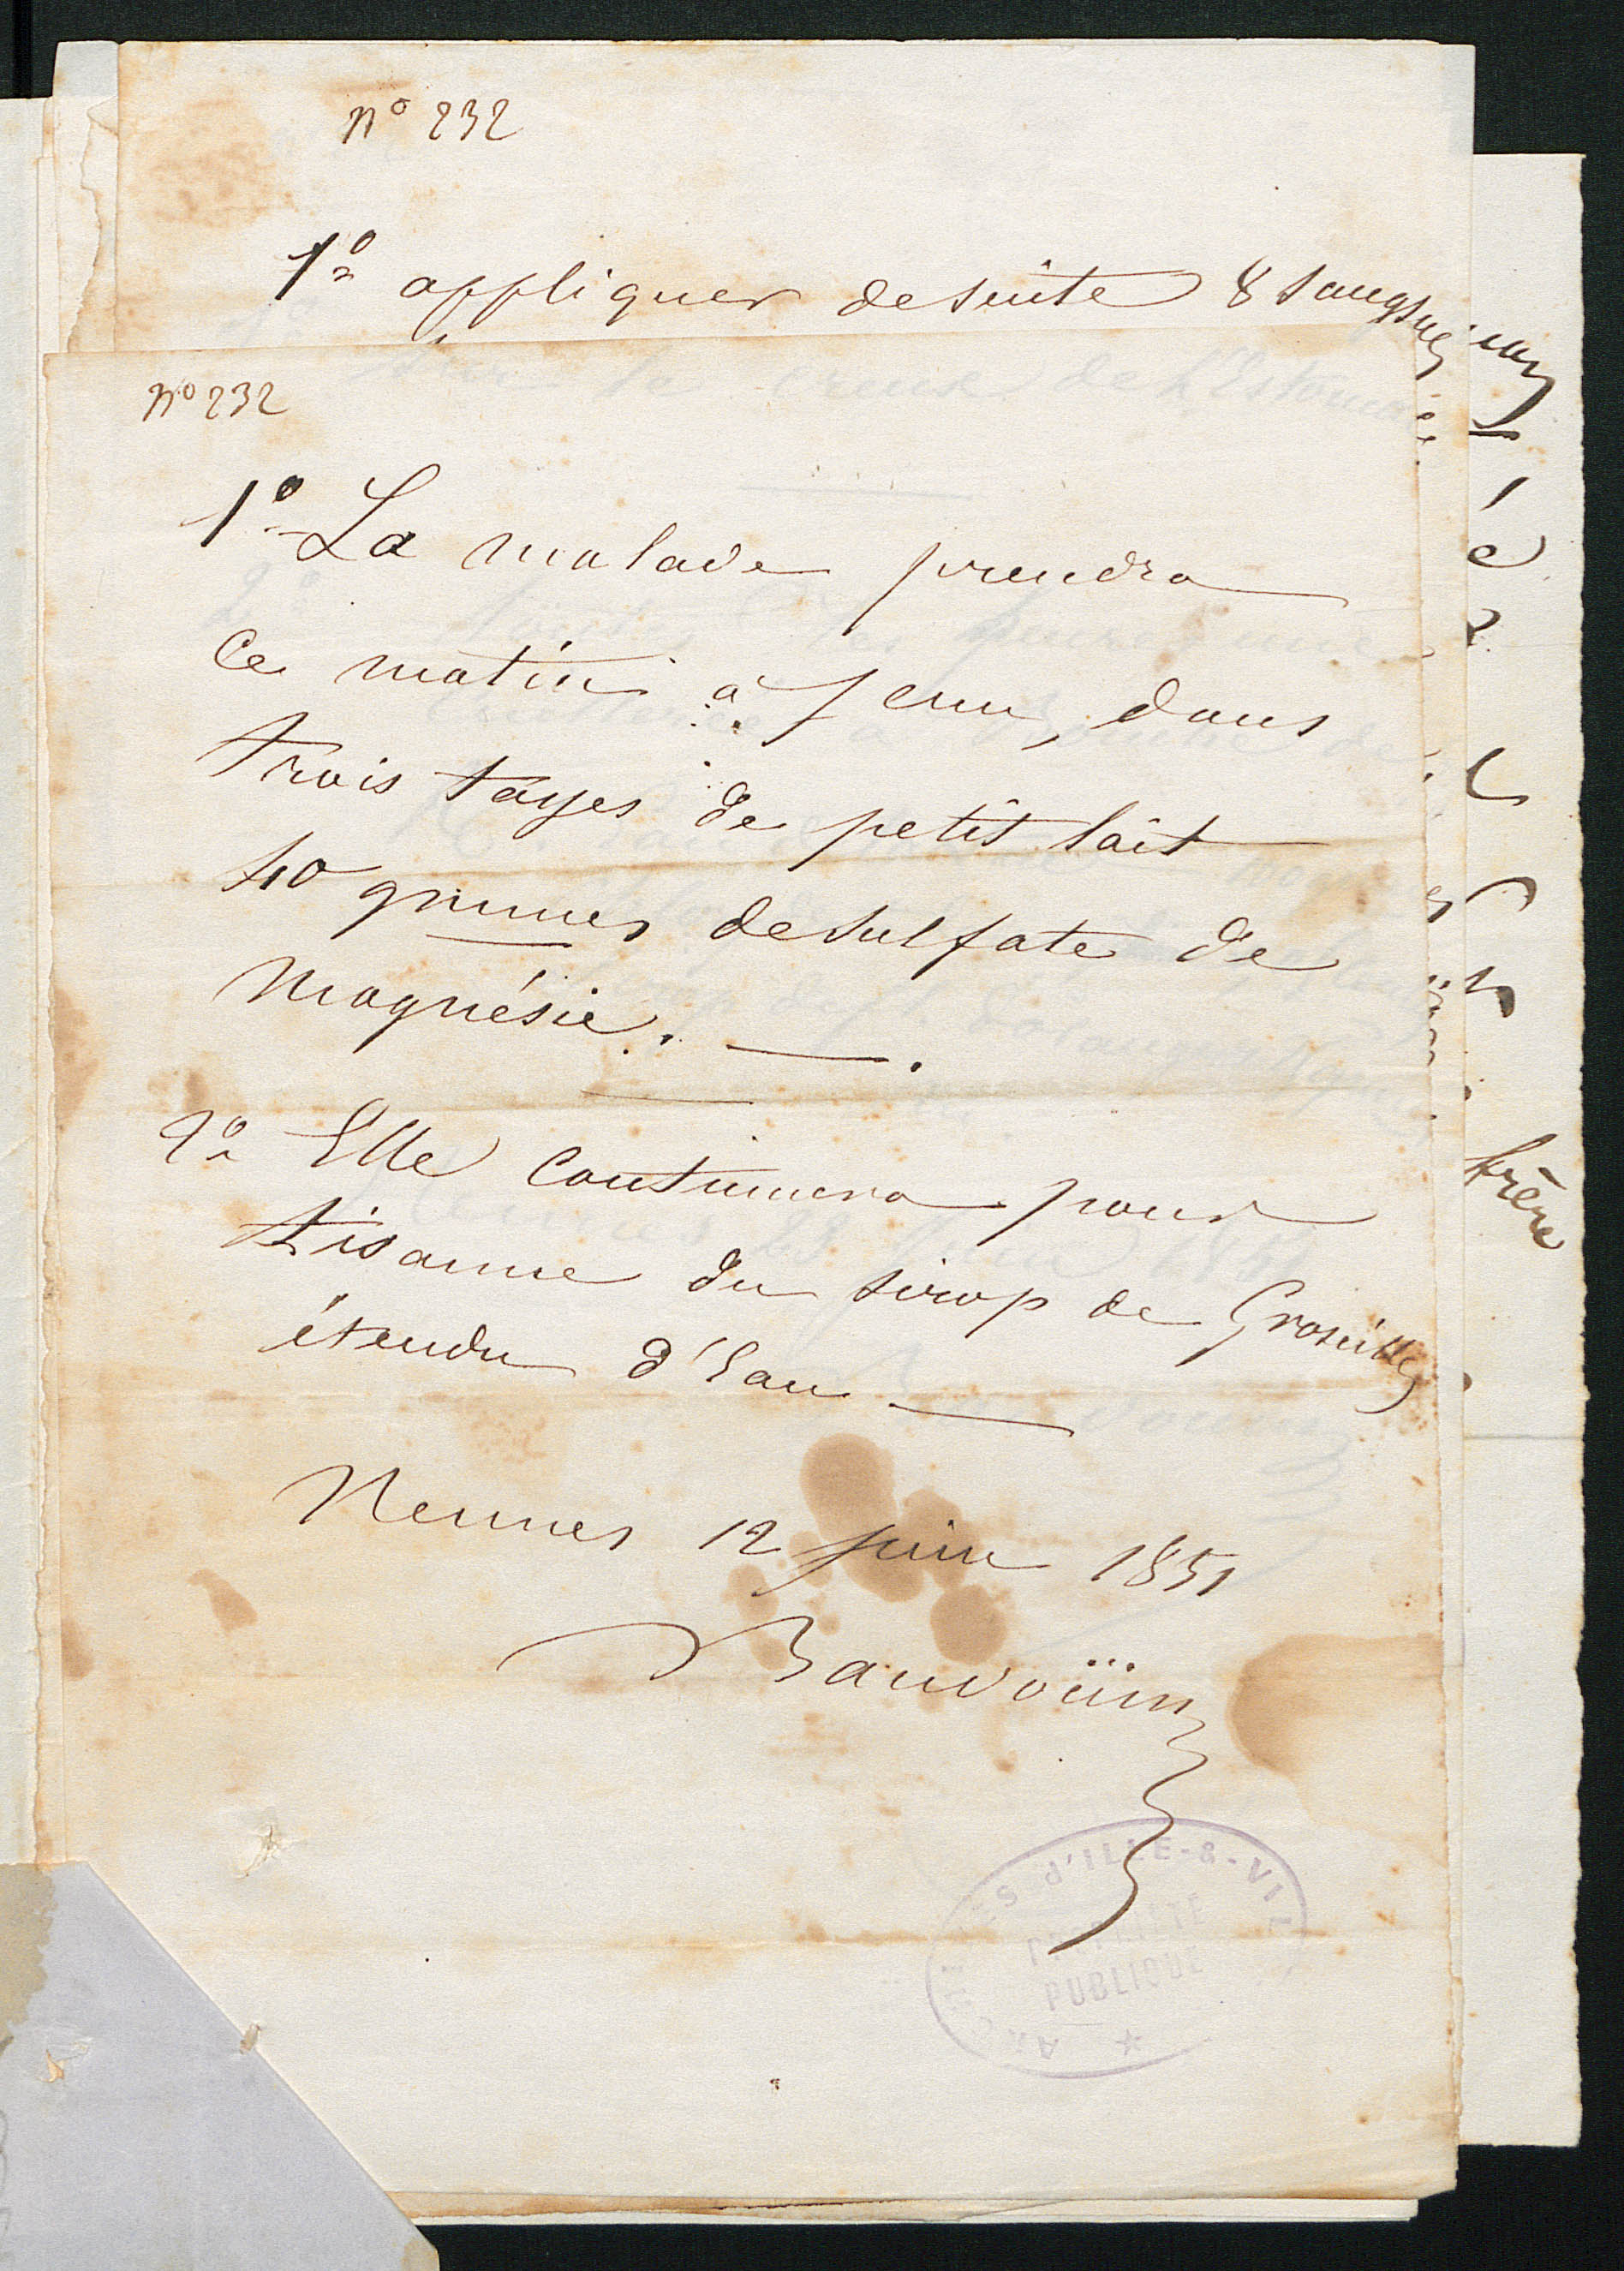 n° 232
1° appliquer de suite 8 sangsues
n° 232
1° La malade prendra
ce matin à jeun, dans
trois tasses de petit lait
40 grammes de sulfate de
Magnésie.
2° Elle continuera pour
tisanne du sirop de Groseilles
étendu d'Eau
Rennes 12 juin 1851
Baudoüin
ARCHIVES d'ILLE-&-VIL
PROPRIÉTÉ
PUBLIQUE
frère